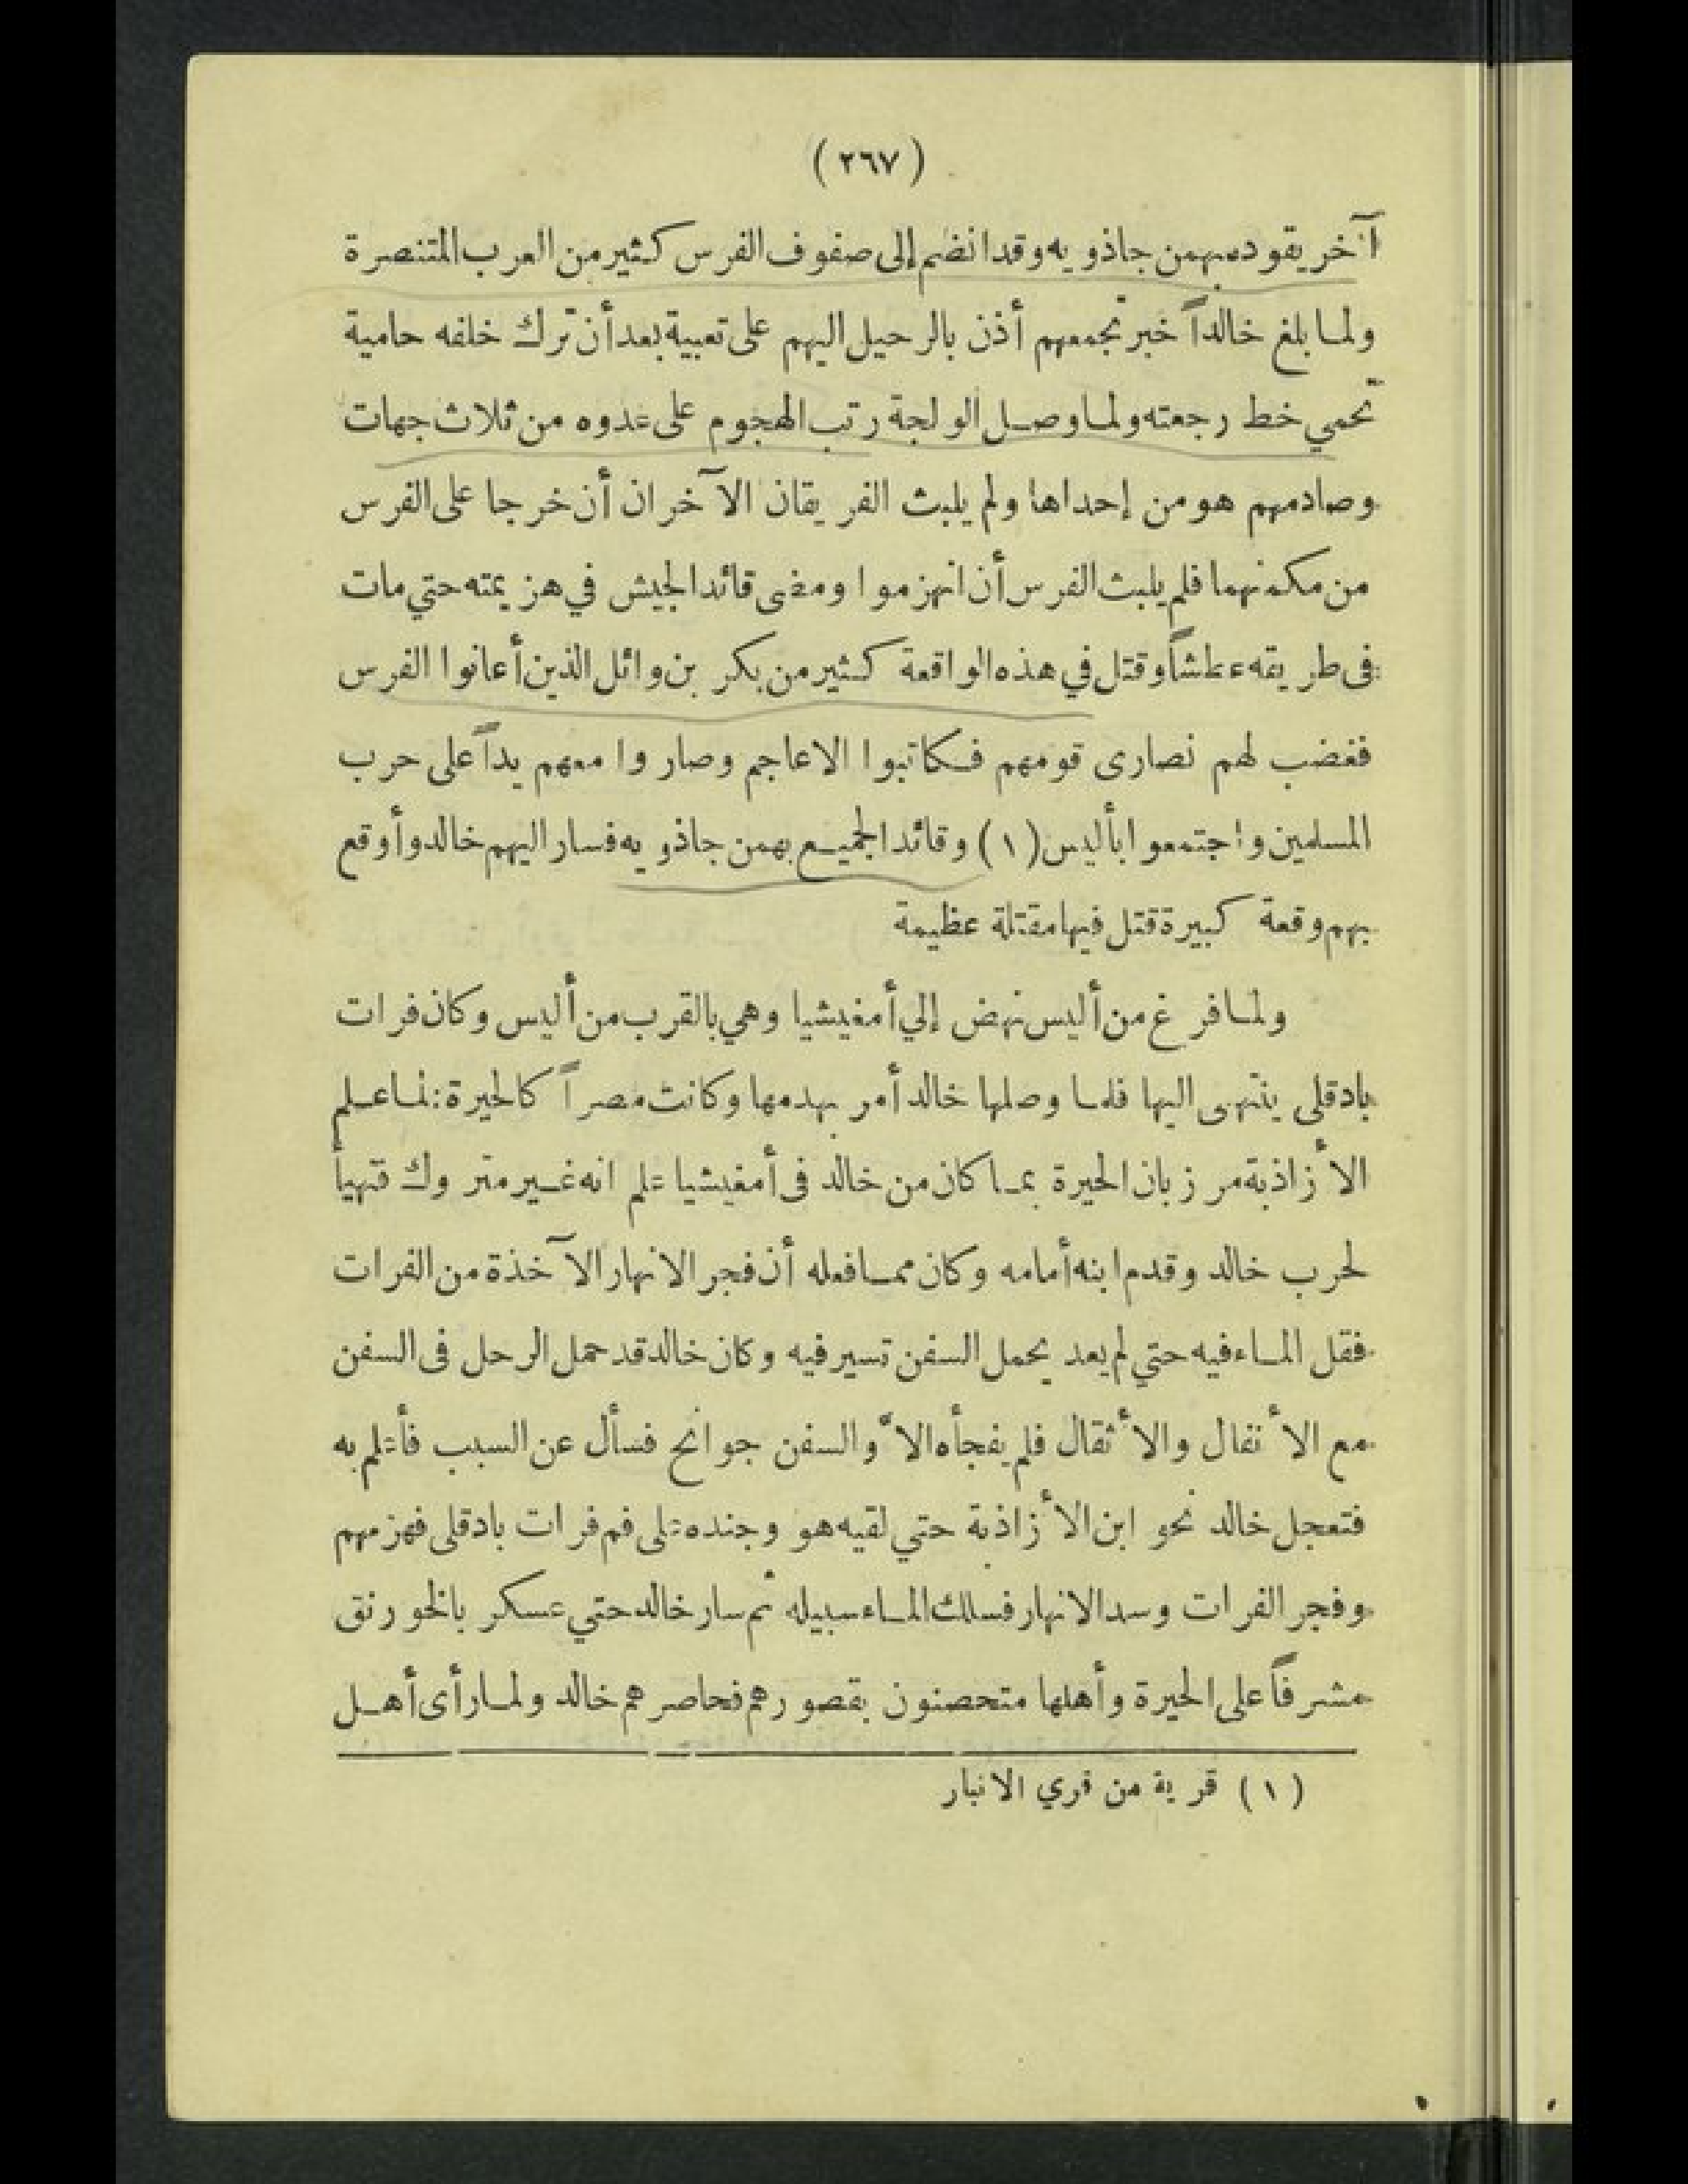 (٢٦٧)
آخر يقوده بهمن جاذويه وقد انضم إلى صفوف الفرس كثير من العرب المتنصرة
ولما بلغ خالداً خبر تجمعهم أذن بالرحيل اليهم على تعبية بعد أن ترك خلفه حامية
تحمي خط رجعته ولما وصل الولجة رتب الهجوم على عدوه من ثلاث جهات
وصادمهم هو من إحداها ولم يلبث الفريقان الآخران أن خرجا على الفرس
من مكمنهما فلم يلبث الفرس أن انهزموا ومضى قائد الجيش في هزيمته حتي مات
فى طريقه عطشاً وقتل في هذه الواقعة كثير من بكر بن وائل الذين أعانوا الفرس
فغضب لهم نصارى قومهم فكاتبوا الاعاجم وصاروا معهم يداً على حرب
المسلمين واجتمعوا بأليس (١) وقائد الجميع بهمن جاذويه فسار اليهم خالد وأوقع
بهم وقعة كبيرة قتل فيها مقتلة عظيمة
ولما فرغ من أليس نهض إلي أمغيشيا وهي بالقرب من أليس وكان فرات
بادقلى ينتهى اليها فلما وصلها خالد أمر بهدمها وكانت مصراً كالحيرة: لما علم
الأزاذبة مرزبان الحيرة بما كان من خالد فى أمغيشيا علم انه غير متروك فتهيأ
لحرب خالد وقدم ابنه أمامه وكان مما فعله أن فجر الانهار الآخذة من الفرات
فقل الماء فيه حتي لم يعد يحمل السفن تسير فيه وكان خالد قد حمل الرحل فى السفن
مع الأنفال والأثقال فلم يفجأه الاّ والسفن جوانح فسأل عن السبب فأعلم به
فتعجل خالد نحو ابن الأزاذبة حتي لقيه هو وجنده على فم فرات بادقلى فهزمهم
وفجر الفرات وسد الانهار فسلك الماء سبيله ثم سار خالد حتي عسكر بالخورنق
مشرفاً على الحيرة وأهلها متحصنون بقصورهم فحاصرهم خالد ولما رأى أهل
(١) قرية من قري الانبار